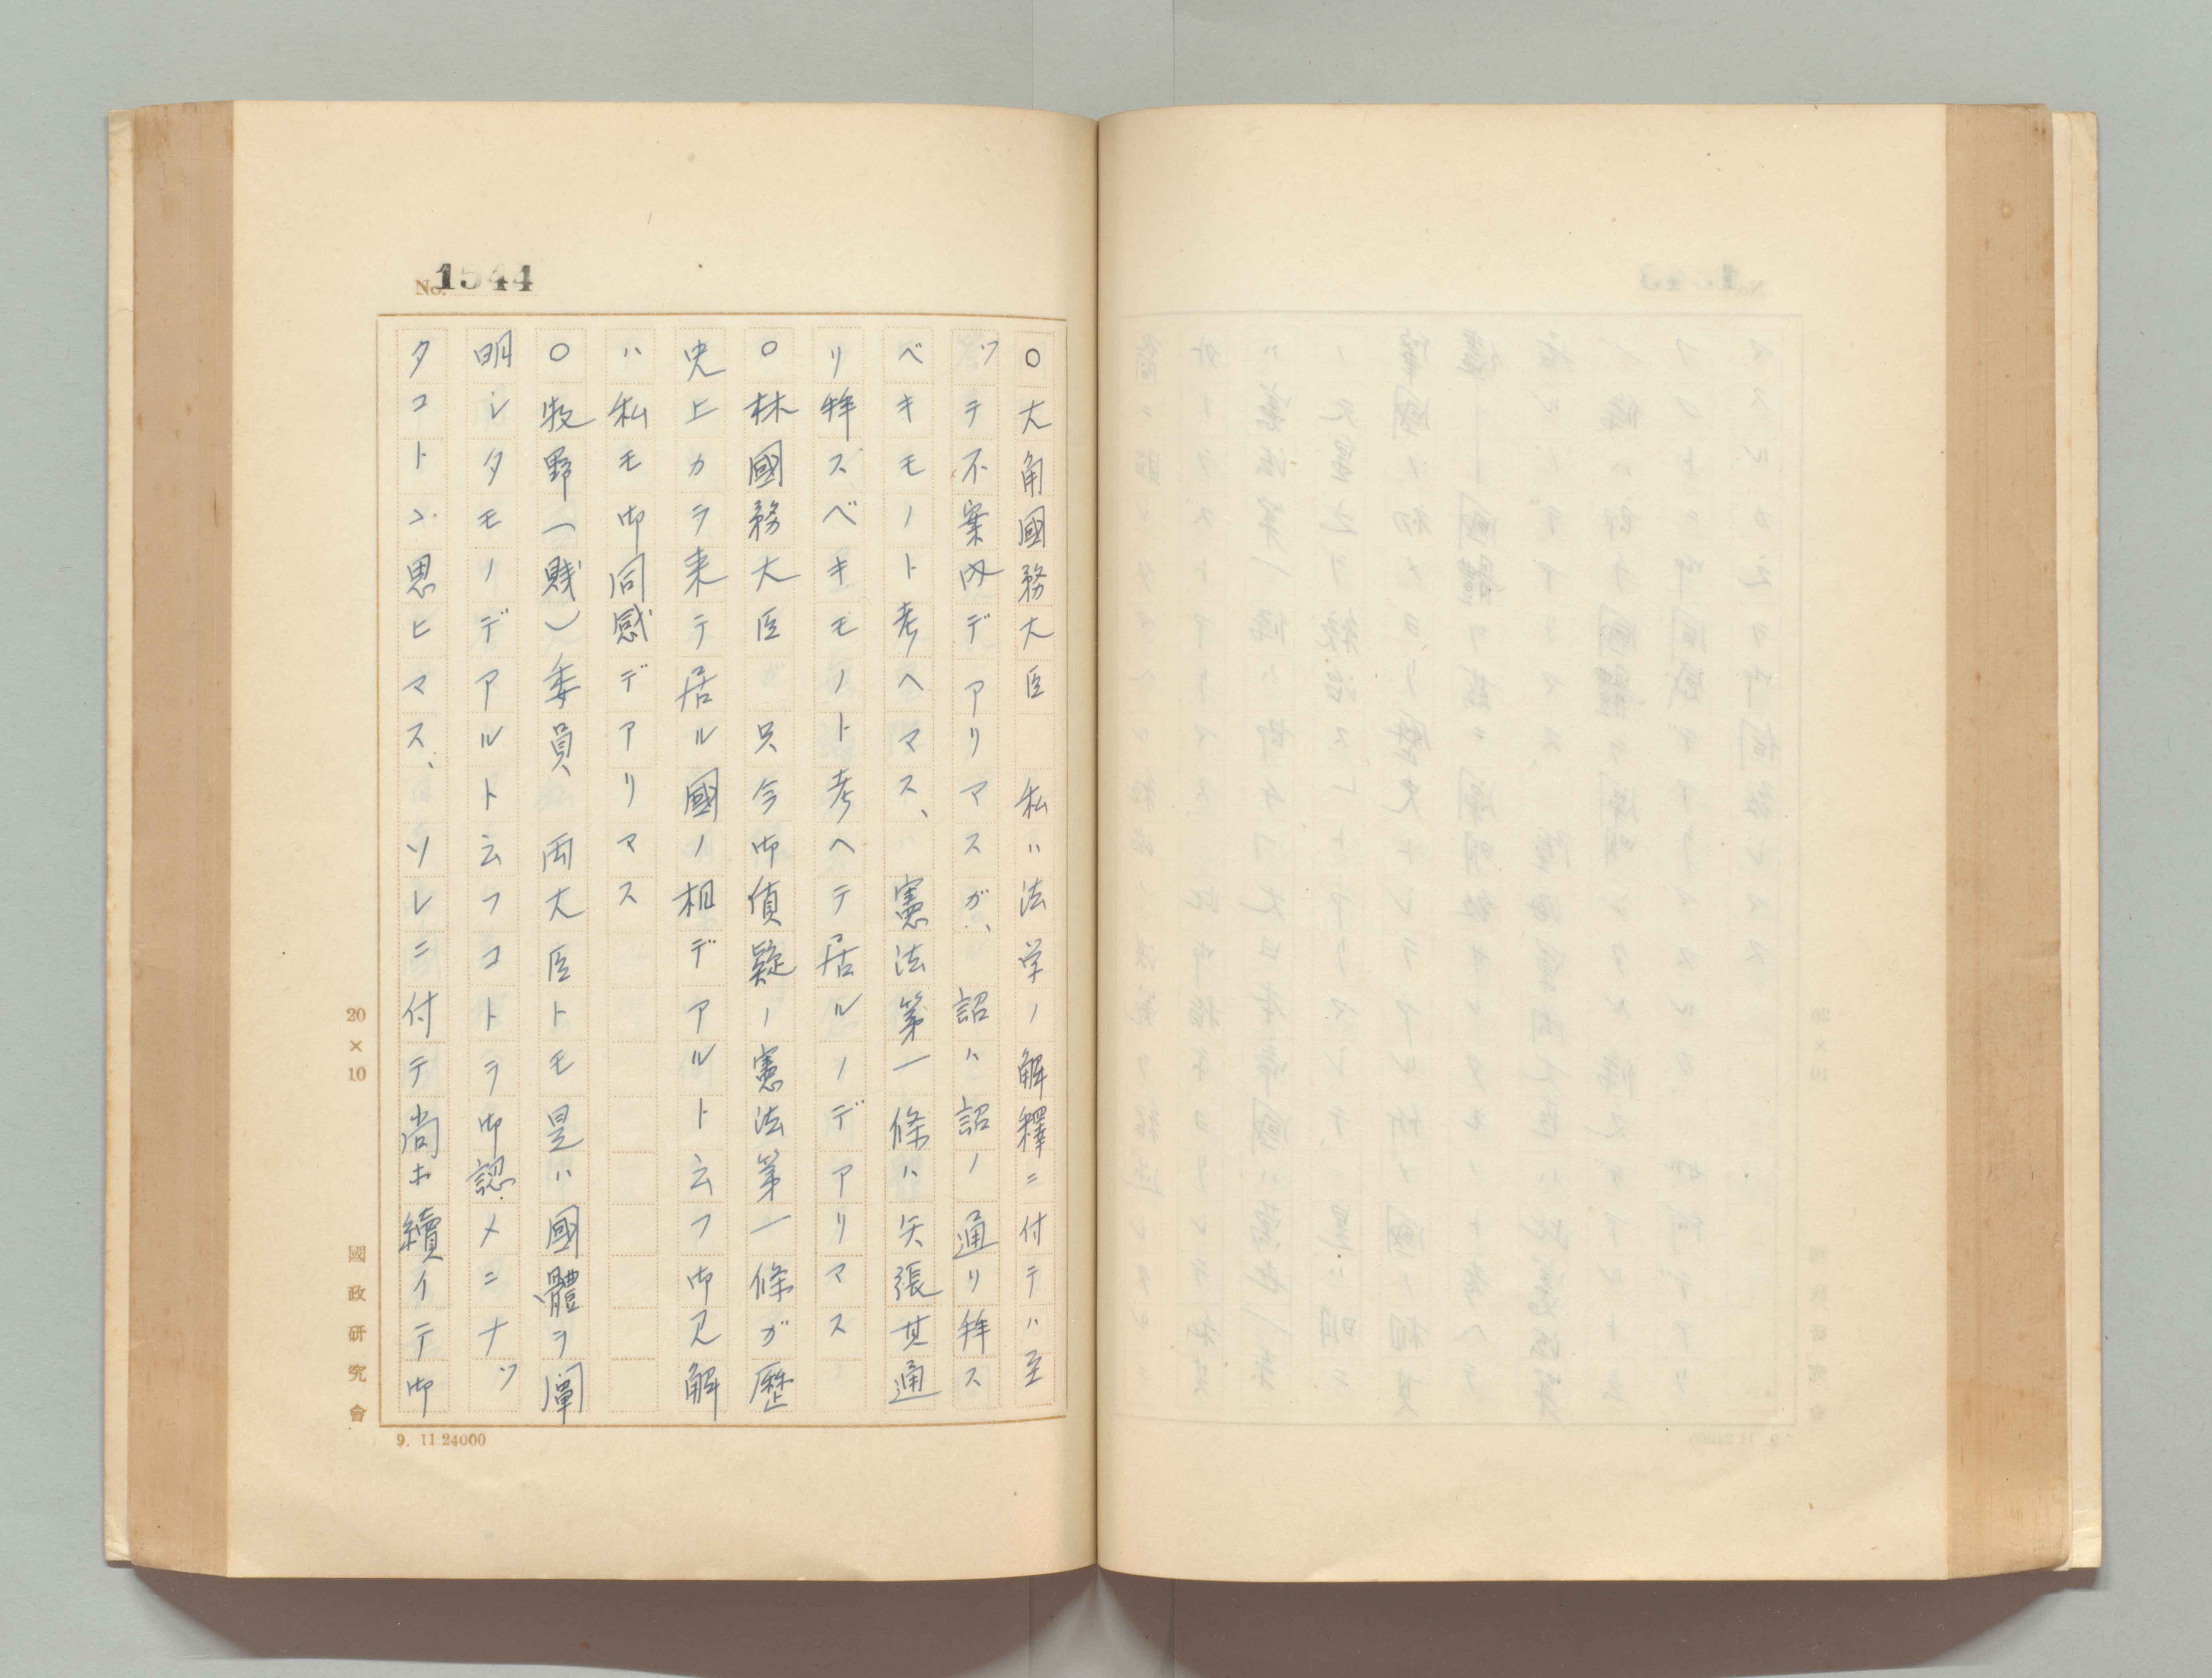 No. 1544
○大角國務大臣　私ハ法学ノ解釋ニ付テハ至
ツテ不案内デアリマスガ、詔ハ詔ノ通リ拜ス
ベキモノト考ヘマス、憲法第一條ハ矢張其通
リ拜スベキモノト考ヘテ居ルノデアリマス
○林國務大臣　只今御質疑ノ憲法第一條ガ歴
史上カラ来テ居ル國ノ相デアルト云フ御見解
ハ私モ御同感デアリマス
○牧野（賤）委員、両大臣トモ是ハ國體ヲ闡
明シタモノデアルト云フコトヲ御認メニナツ
タコトヽ思ヒマス、ソレニ付テ尚ホ續イテ御
20×10
國政研究會
9. 11.24000